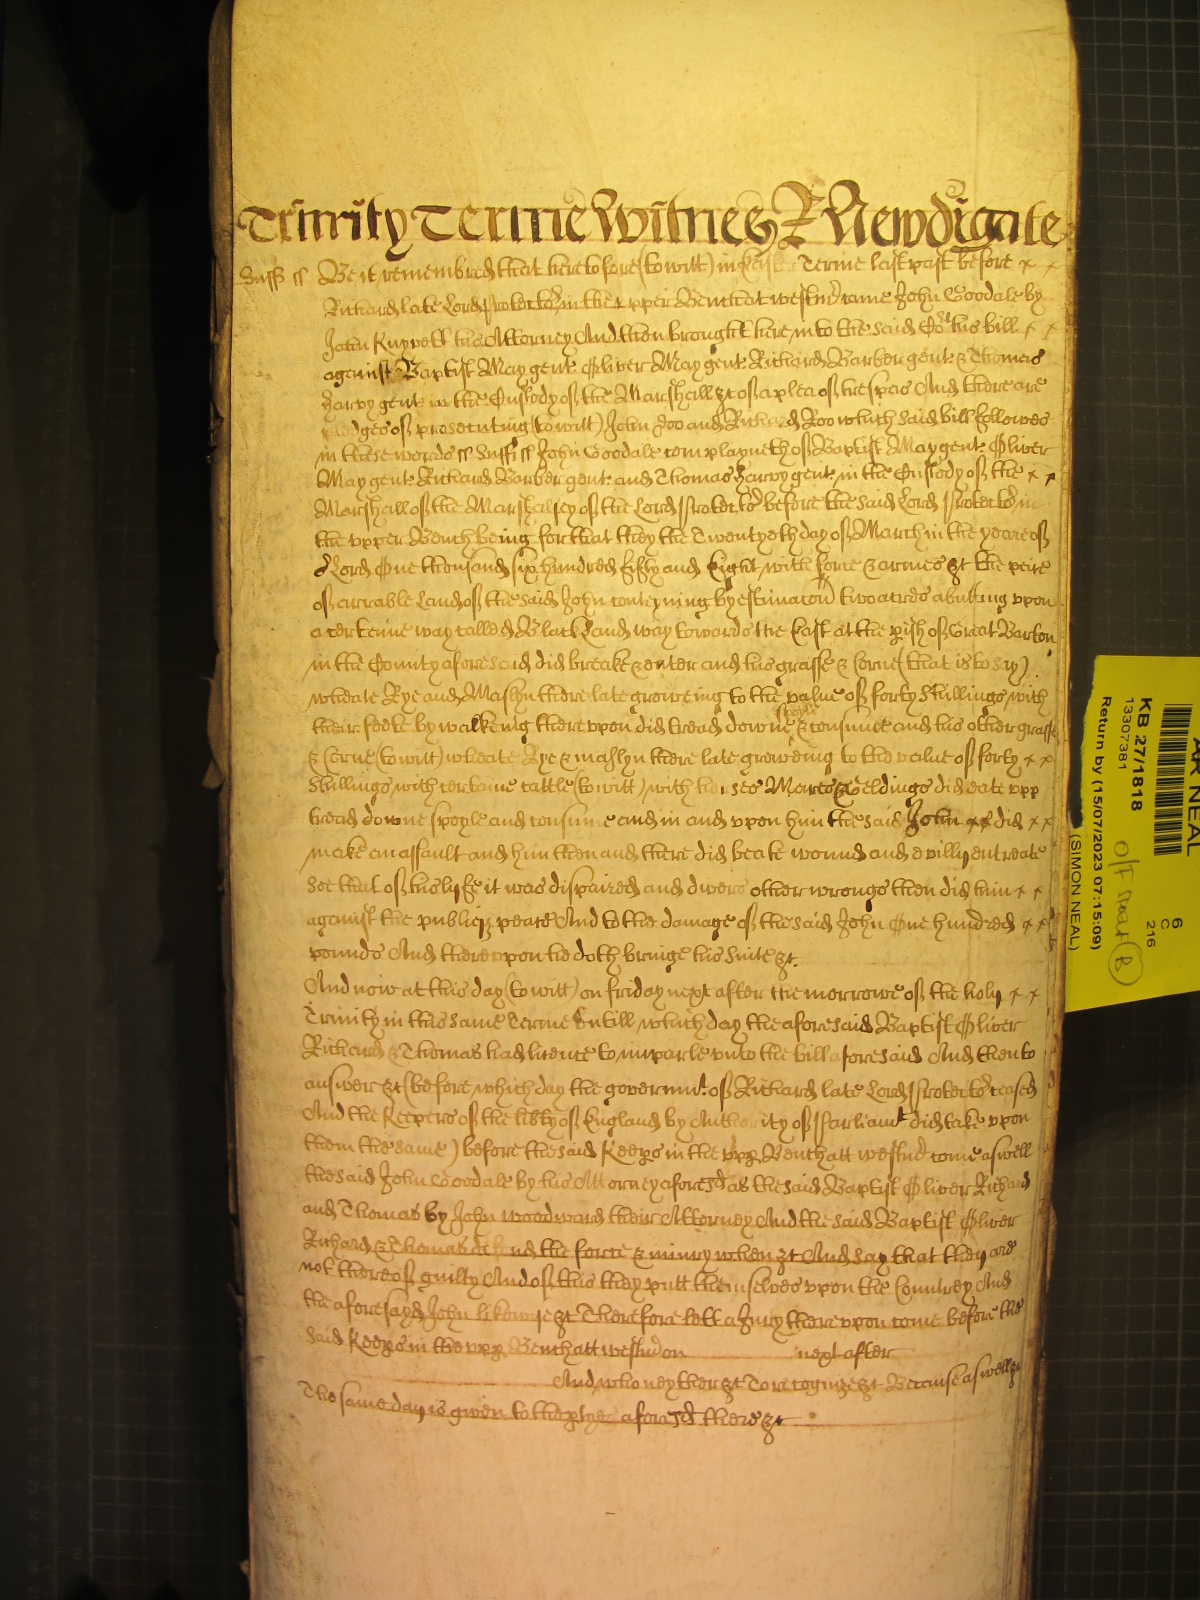 Trinity Terme Witnes R Newdigate
Suff ss Be it remembred that heretofore (to witt) in Easter Terme last past before x x
Richard late Lord Protector in the upper Bench at Westmr came John Goodale by
John Ruppell his Attorney And then brought here into the said Cort his bill x x
against Baptist May gent Oliver May gent Richard Barber gent & Thomas
Harvy gent in the Custody of the Marshall &c of a plea of trespas And there are
pledges of prosecuting (to witt) John Doo and Richard Roo which said bill followes
in these words ss Suff ss John Goodale complayneth of Baptist May gent Oliver
May gent Richard Barber gent and Thomas Harvy gent in the Custody of the x x
Marshall of the Marshalsey of the Lord Protector before the said Lord Protector in
the upper Bench being for that they the Twentyeth day of March in the yeare of
or Lord One thousand six hundred fifty and Eight with force & armes &c the peice
of arrable Land of the said John conteyning by estimacon two acres abutting upon
a certeine way called Blackland way towards the East at the pish of Great Barton
in the County aforesaid did breake & enter and his grasse & Corne (that is to say)
wheate Rye and Maslyn there late groweing to the value of forty Shillings with
their feete by walkeing thereupon did tread downe spoyle & consume and his other grasse
& Corne (to witt) wheate Rye & maslyn there late groweing to the value of forty x x
Shillings with certaine cattle (to witt) with horses Mares & Geldings did eate upp
tread downe spoyle and consume and in and upon him the said John xx did x x
make an assault and him then and there did beate wound and evilly entreate
soe that of his lyfe it was dispaired and divers other wrongs then did him x x
against the publiq peace And to the damage of the said John One hundred x x
pounds And thereupon he doth bringe his suite &c.
And now at this day (to witt) on friday next after the morrowe of the holy x x
Trinity in this same Terme Untill which day the aforesaid Baptist Oliver
Richard & Thomas had licence to imparle unto the bill aforesaid And then to
answer &c (before which day the governmt of Richard late Lord Protector ceased
And the Keepers of the libty of England by Authority of Parliamt did take upon
them the same) before the said Keeps in the upp Bench att Westmr come aswell
the said John Goodale by his Attorney aforesd as the said Baptist Oliver Richard
and Thomas by John Woodward their Attorney And the said Baptist Oliver
Richard & Thomas defend the force & iniury when &c And say that they are
not thereof guilty And of this they putt themselves upon the Countrey And
the aforesayd John likewise &c Therefore lett a Jury thereupon come before the
said Keeps in the upp Bench att Westmr on next after
And who neyther &c To recognize &c Because aswell &c
The same day is given to the ptyes aforesd there &c
AR NEAL
KB 27/1818
13307381
Return by (15/07/2023 07:15:09)
(SIMON NEAL)
6
C
216